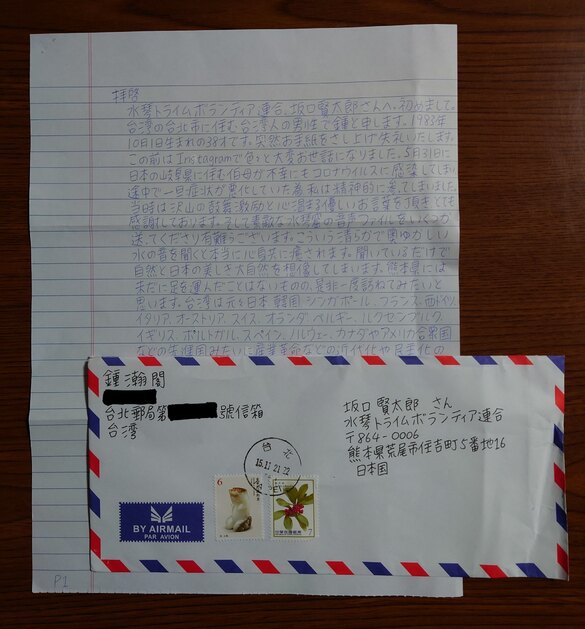 拝啓
水琴トライムボランティア連合、坂口賢太郎さんへ。初めまして。
台湾の台北市に住む台湾人の男性で鍾と申します。1983年
10月1日生まれの38才です。突然お手紙をさし上げ失礼いたします。
この前はInstagramで色々と大変お世話になりました。5月31日に
日本の岐阜県に住む伯母が不幸にもコロナウイルスに感染してしまい
途中で一旦症状が悪化していた為私は精神的に参ってしまいました。
当時は沢山の鼓舞激励と心温まる優しいお言葉を頂きとても
感謝しております。そして素敵な水琴窟の音声ファイルをいくつか
送ってくださり有難うございます。こういう清らかで奥ゆかしい
水の音を聞くと本当に心身共に癒されます。聞いているだけで
自然と日本の美しき大自然を想像してしまいます。熊本県には
未だに足を運んだことはないものの、是非一度訪ねてみたいと
思います。台湾は元々日本、韓国、シンガポール、フランス、西ドイツ、
イタリア、オーストリア、スイス、オランダ、ベルギー、ルクセンブルク、
イギリス、ポルトガル、スペイン、ノルウェー、カナダやアメリカ合衆国
などの先進国みたいに産業革命などの近代化や民主化の
P1
鍾瀚閣
台北郵局第 號信箱
台湾
台北
15.11.21.12
TAIPEI
6
7
BY AIRMAIL
PAR AVION
坂口 賢太郎 さん
水琴トライムボランティア連合
〒864-0006
熊本県荒尾市住吉町5番地16
日本国